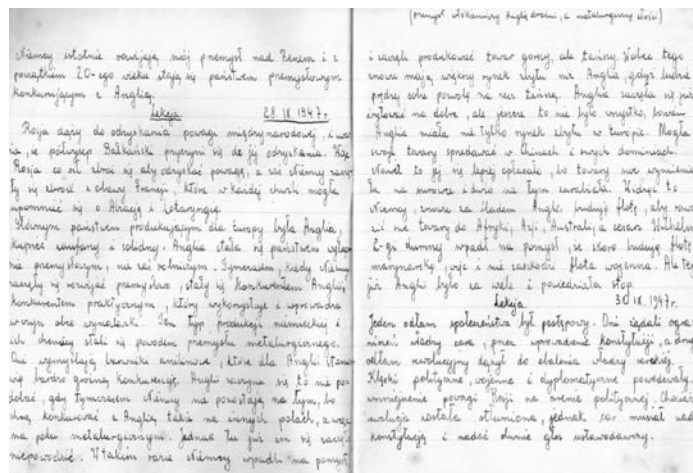 Niemcy istotnie rozwijają swój przemysł nad Renem i z
początkiem 20-ego wieku stają się państwem przemysłowym
konkurującym z Anglią.
Lekcja 28.IX.1947r.
Rosja dąży do odzyskania powagi międzynarodowej, i uwa
ża, że półwysep Bałkański przyczyni się do jej odzyskania. Więc
Rosja co sił zbroi się aby odzyskać powagę, a zaś Niemcy zaczę
ły się zbroić z obawy Francji, która w każdej chwili mogła
upomnieć się o Alzację i Lotaryngię.
Głównym państwem produkującym dla Europy była Anglia,
kupiec zaufany i solidny. Anglia stała się państwem
przemysłowym, nie zaś rolniczym. Tymczasem, kiedy Niemcy
zaczęły się rozwijać przemysłowo, stały się konkurentem Anglii,
konkurentem praktycznym, który wykorzystuje i wprowadza
w czyn obce wynalazki. Ten typ produkcji niemieckiej i
ich chemicy stali się powodem przemysłu metalurgicznego.
Oni wymyślają barwniki anilinowe, które dla Anglii stano
wią bardzo groźną konkurencję. Anglii zaczyna się to nie po
dobać, gdy tymczasem Niemcy nie pozostają na tym, bo
chcą konkurować z Anglią także na innych polach, a więc
na polu metalurgicznym. Jednak tu już im się zaczęło
niepowodzić. W takim razie Niemcy wpadli na pomysł
(przemysł włókienniczy Anglię drażni, a metalurgiczny złości)
i zaczęli produkować towar gorszy, ale tańszy. Wobec tego
znowu mają większy rynek zbytu niż Anglia, gdyż ludzie
prędzej sobie pozwolą na rzecz tańszą. Anglia zaczęła się już
irytować na dobre, ale jeszcze to nie było wszystko, bowiem
Anglia miała nie tylko rynek zbytu w Europie. Mogła
swoje towary sprzedawać w Chinach i swych dominiach.
Nawet to jej się lepiej opłacało, bo towary swe wymienia
ła na surowce i dużo na tym zarabiała. Widząc to
Niemcy, znowu za śladem Anglii budują flotę, aby rozwo
zić swe towary do Afryki, Azji, Australii, a cesarz Wilhelm
2-gi dumny wpadł na pomysł, że skoro budują flotę
marynarską, więc i nie zaszkodzi flota wojenna. Ale tego
już Anglii było za wiele i powiedziała stop.
Lekcja 30.IX.1947r.
Jeden odłam społeczeństwa był postępowy. Oni żądali ogra
niczeń władzy cara, przez wprowadzenie konstytucji, a drugi
odłam rewolucyjny dążył do obalenia władzy carskiej.
Klęski polityczne, wojenne i dyplomatyczne powodowały
umniejszenie powagi Rosji na arenie politycznej. Chociaż
rewolucja została stłumiona, jednak car musiał
konstytucję i nadać dumie głos ustawodawczy.